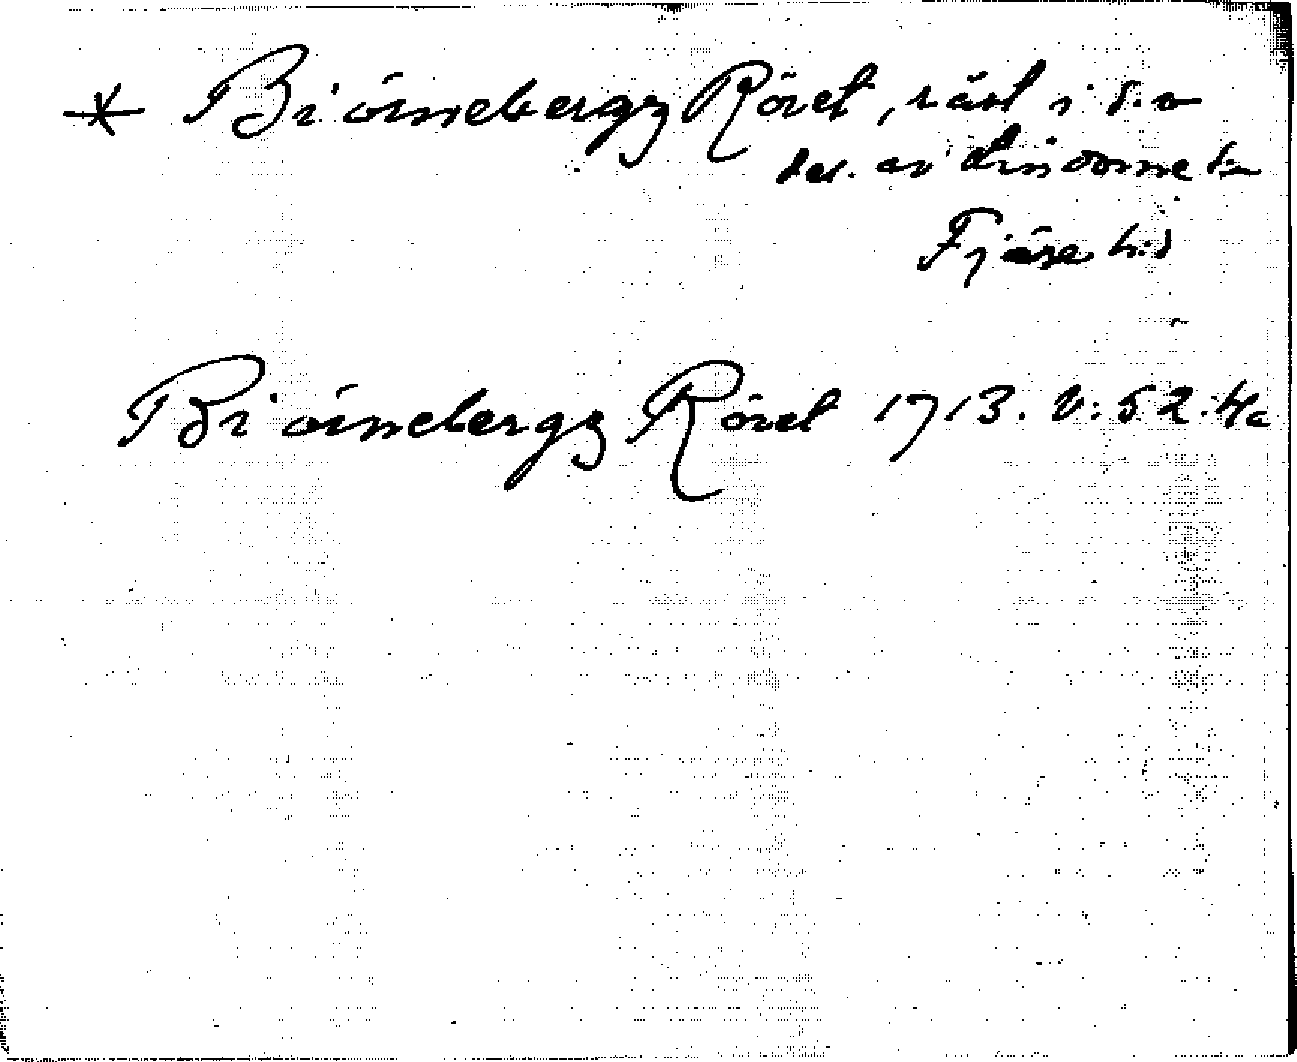 * Biörnebergz Röret, råst i s.v
del. av Lindome sn
Fjäre hd
Biörnebergz Röret 1713. V: 52. 4a